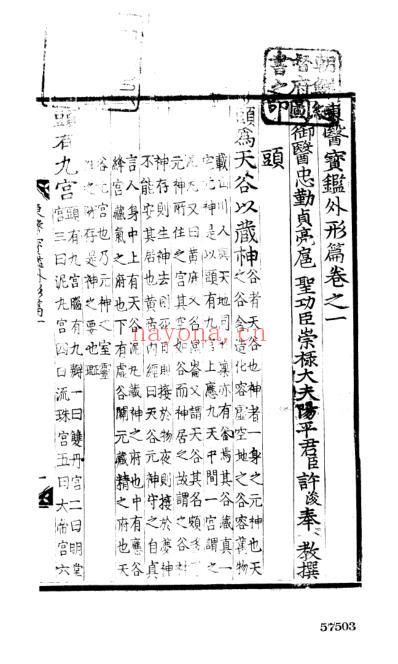 朝鮮總
督府圖
書之印
東醫寶鑑外形篇卷之一
御醫忠勤貞亮扈 聖功臣崇祿大夫陽平君臣許浚奉 教撰
頭
頭爲天谷以藏神 谷者天谷也神者一身之元神也天
之谷含造化容虛空地之谷容萬物
載山川人與天地同稟亦有谷焉其谷藏真一
宅元神是以頭有九宮上應九天中間一宮謂之
泥丸又曰黃庭又名崑崙又謂天谷其名頗多乃
元神所住之宮其空如谷而神居之故謂之谷神
神存則生神去則死日則接於物夜則接於夢神
不能安其居也黃帝內經曰天谷元神守之自真
言人身中上有天谷泥丸藏神之府也中有應谷
絳宮藏氣之府也下有虛谷關元藏精之府也天
谷元宮也乃元神之室靈
性之所存是神之要也
頭有九宮 頭有九宮腦有九瓣一曰雙丹宮二曰明堂
宮三曰泥丸宮四曰流珠宮五曰大帝宮六
nayona.cn
57503